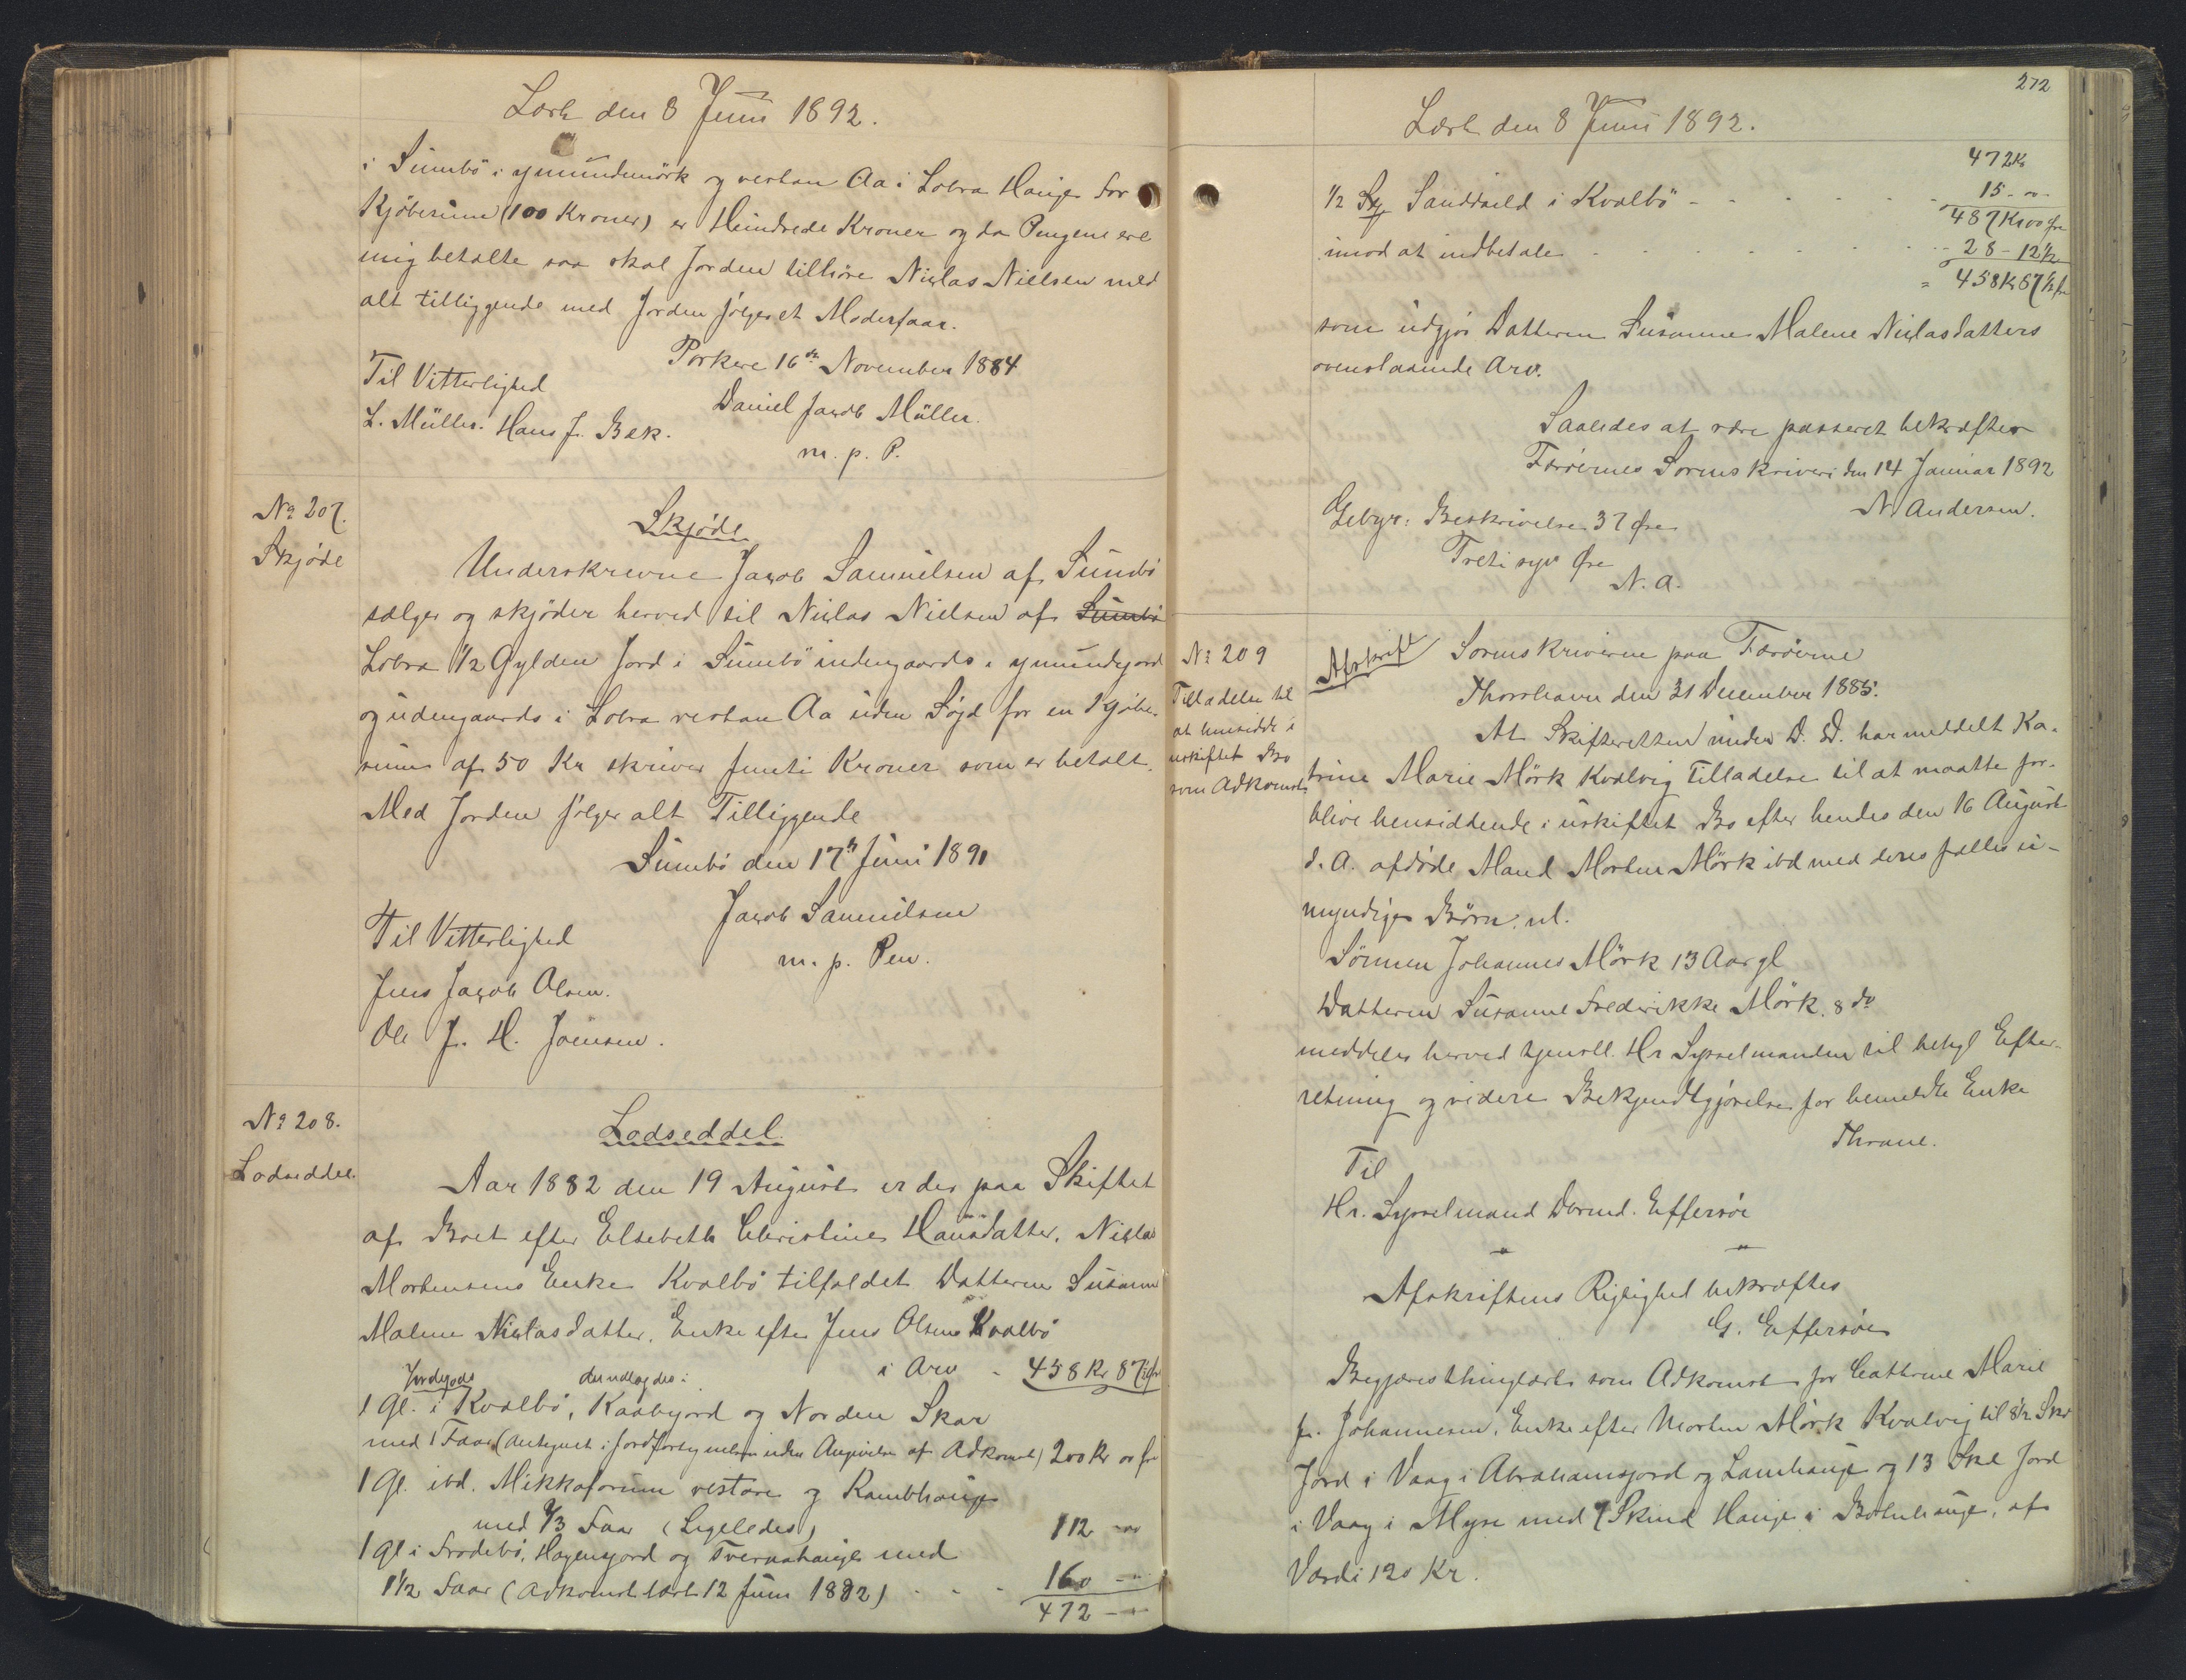 Læst den 8 Juni 1892.
i Sumbö i ymundemörk og vestan Aa i Lobra Hauge for
Kjöbesum (100 Kroner) er Hundrede Kroner og da Pengene ere
mig betalte saa skal Jorden tilhöre Niclas Nielsen med
alt tilliggende med Jorden fölger et Moderfaar.
Porkere 16de November 1884
Til Vitterlighed
Daniel Jacob Müller.
L. Müller. Hans J. Bek.
m. p. P.
No 207.
Skjöde
Skjöde
Underskrevne Jacob Samuelsen af Sumbö
sælger og skjöder herved til Niclas Nielsen af Sumbö
Lobra 1/2 Gylden Jord i Sumbö indengaards i ymundegjord
og udengaards i Lobra vestan Aa uden Söjd for en Kjöbe-
sum af 50 Kr skriver femti Kroner som er betalt.
Med Jorden fölger alt Tilliggende
Sumbö den 17de Juni 1891
Jacob Samuelsen
Til Vitterlighed
m. p. Pen.
Jens Jacob Olsen.
Ole J. H. Joensen.
No 208.
Lodseddel.
Lodseddel.
Aar 1882 den 19 August er der paa Skiftet
af Boet efter Elsebeth Christine Hansdatter, Niclas
Mortensens Enke Kvalbö tilfaldet Datteren Susanne
Malene Niclasdatter, Enke efter Jens Olsen Kvalbö
i Arv - 458 Kr 87½ Øre
Jordegods der udlagdes:
1 Gl. i Kvalbö, Kaabyord og Norden Skar
med 1 Faar (Antegnet i Jordfortegnelsen uden Angivelse af Adkomst) 200 Kr 00 Øre
1 Gl. ibd. Mikkaforum vestare og Kambhauge
med 2/3 Faar (Ligeledes) 112 - 00
1 Gl i Frodebö, Hagensjord og Tverrahauge med
1½ Faar (Adkomst læst 12 Juni 1882) - - - 160 - -
472 - -
272
Læst den 8 Juni 1892.
472 Kr
1/2 Sk Sanddseld i Kvalbö - - - - - - 15 - 00 -
487 Kr 00 Øre
imod at indbetale - - - - - - - 28 - 12½
= 458 Kr 87½ Øre
som udgjör Datteren Susanne Malene Niclasdatters
ovenstaaende Arv.
Saaledes at være passeret bekræfter
Færöernes Sorenskriveri den 14 Januar 1892
N. Andersen.
Gebyr: Beskrivelse 37 Øre
Treti syv Øre
N. A.
No 209
Tilladelse til
at hensidde i
uskiftet Bo
som Adkomst
Afskrift
Sorenskriveren paa Færöerne
Thorshavn den 31 December 1885.
At Skifteretten under D. D. har meddelt Ka-
trine Marie Mörk Kvalvig Tilladelse til at maatte for-
blive hensiddende i uskiftet Bo efter hendes den 16 August
d. A. afdöde Mand Morten Mörk ibd med deres fælles u-
myndige Börn: nl.
Sönnen Johannes Mörk 13 Aar gl
Datteren Susanne Frederikke Mörk 8 do
meddeles herved tjenstl. Hr Sysselmanden til behgl Efter-
retning og videre Bekjendtgjörelse for bemeldte Enke
Thrane.
Til
Hr. Sysselmand Dbrmd. Effersöe
Afskriftens Rigtighed bekræftes
G. Effersöe
Begjæres thinglæst som Adkomst for Cathrine Marie
f. Johannesen, Enke efter Morten Mörk Kvalvig til 8½ Skd
Jord i Vaag i Abrahamsjord og Lamhauge og 13 Skd Jord
i Vaag i Myre med 7 Skind Hauge i Botnhauge, af
Værdi 120 Kr.